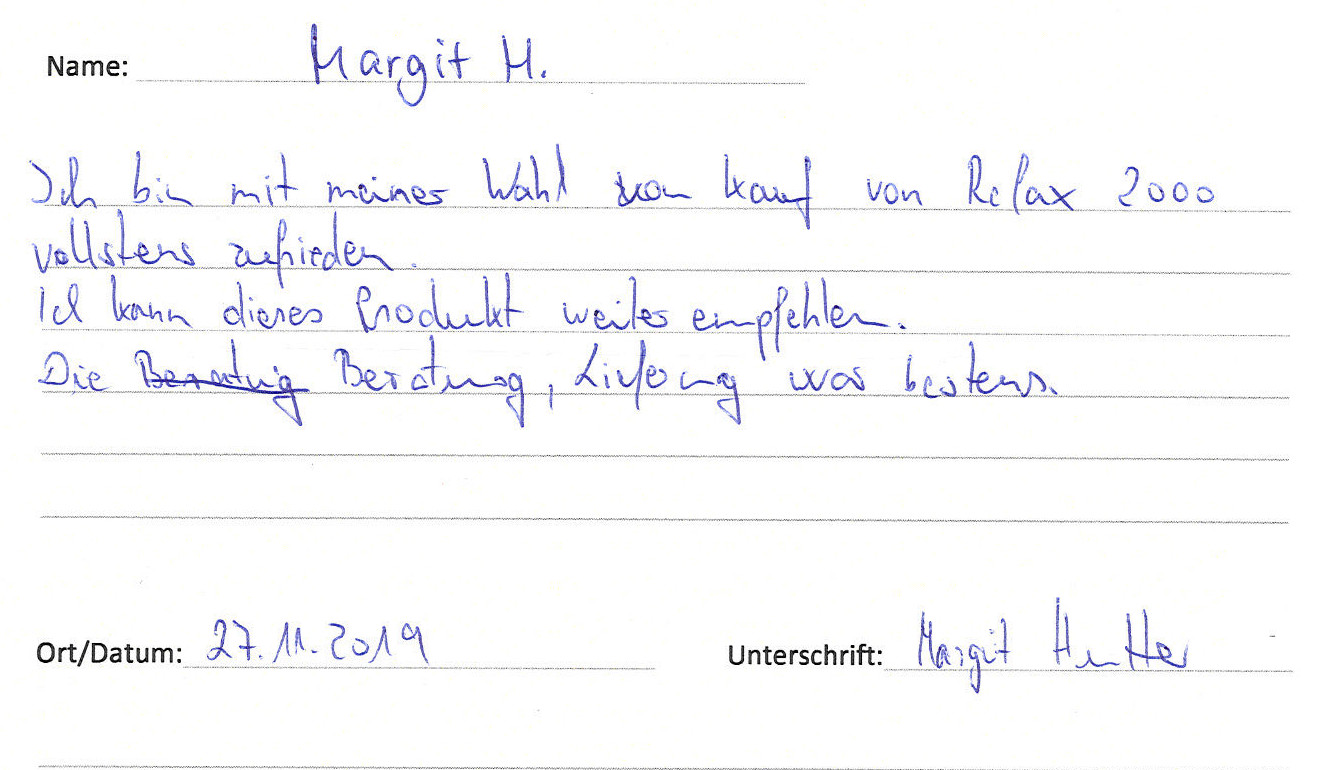 Name: Margit H.
Ich bin mit meiner Wahl von kauf von Relax 2000
vollstens zufrieden.
Ich kann dieses Produkt weiter empfehlen.
Die Beratung Beratung, Lieferung war bestens.
Ort/Datum: 27.11.2019 Unterschrift: Margit Hutter